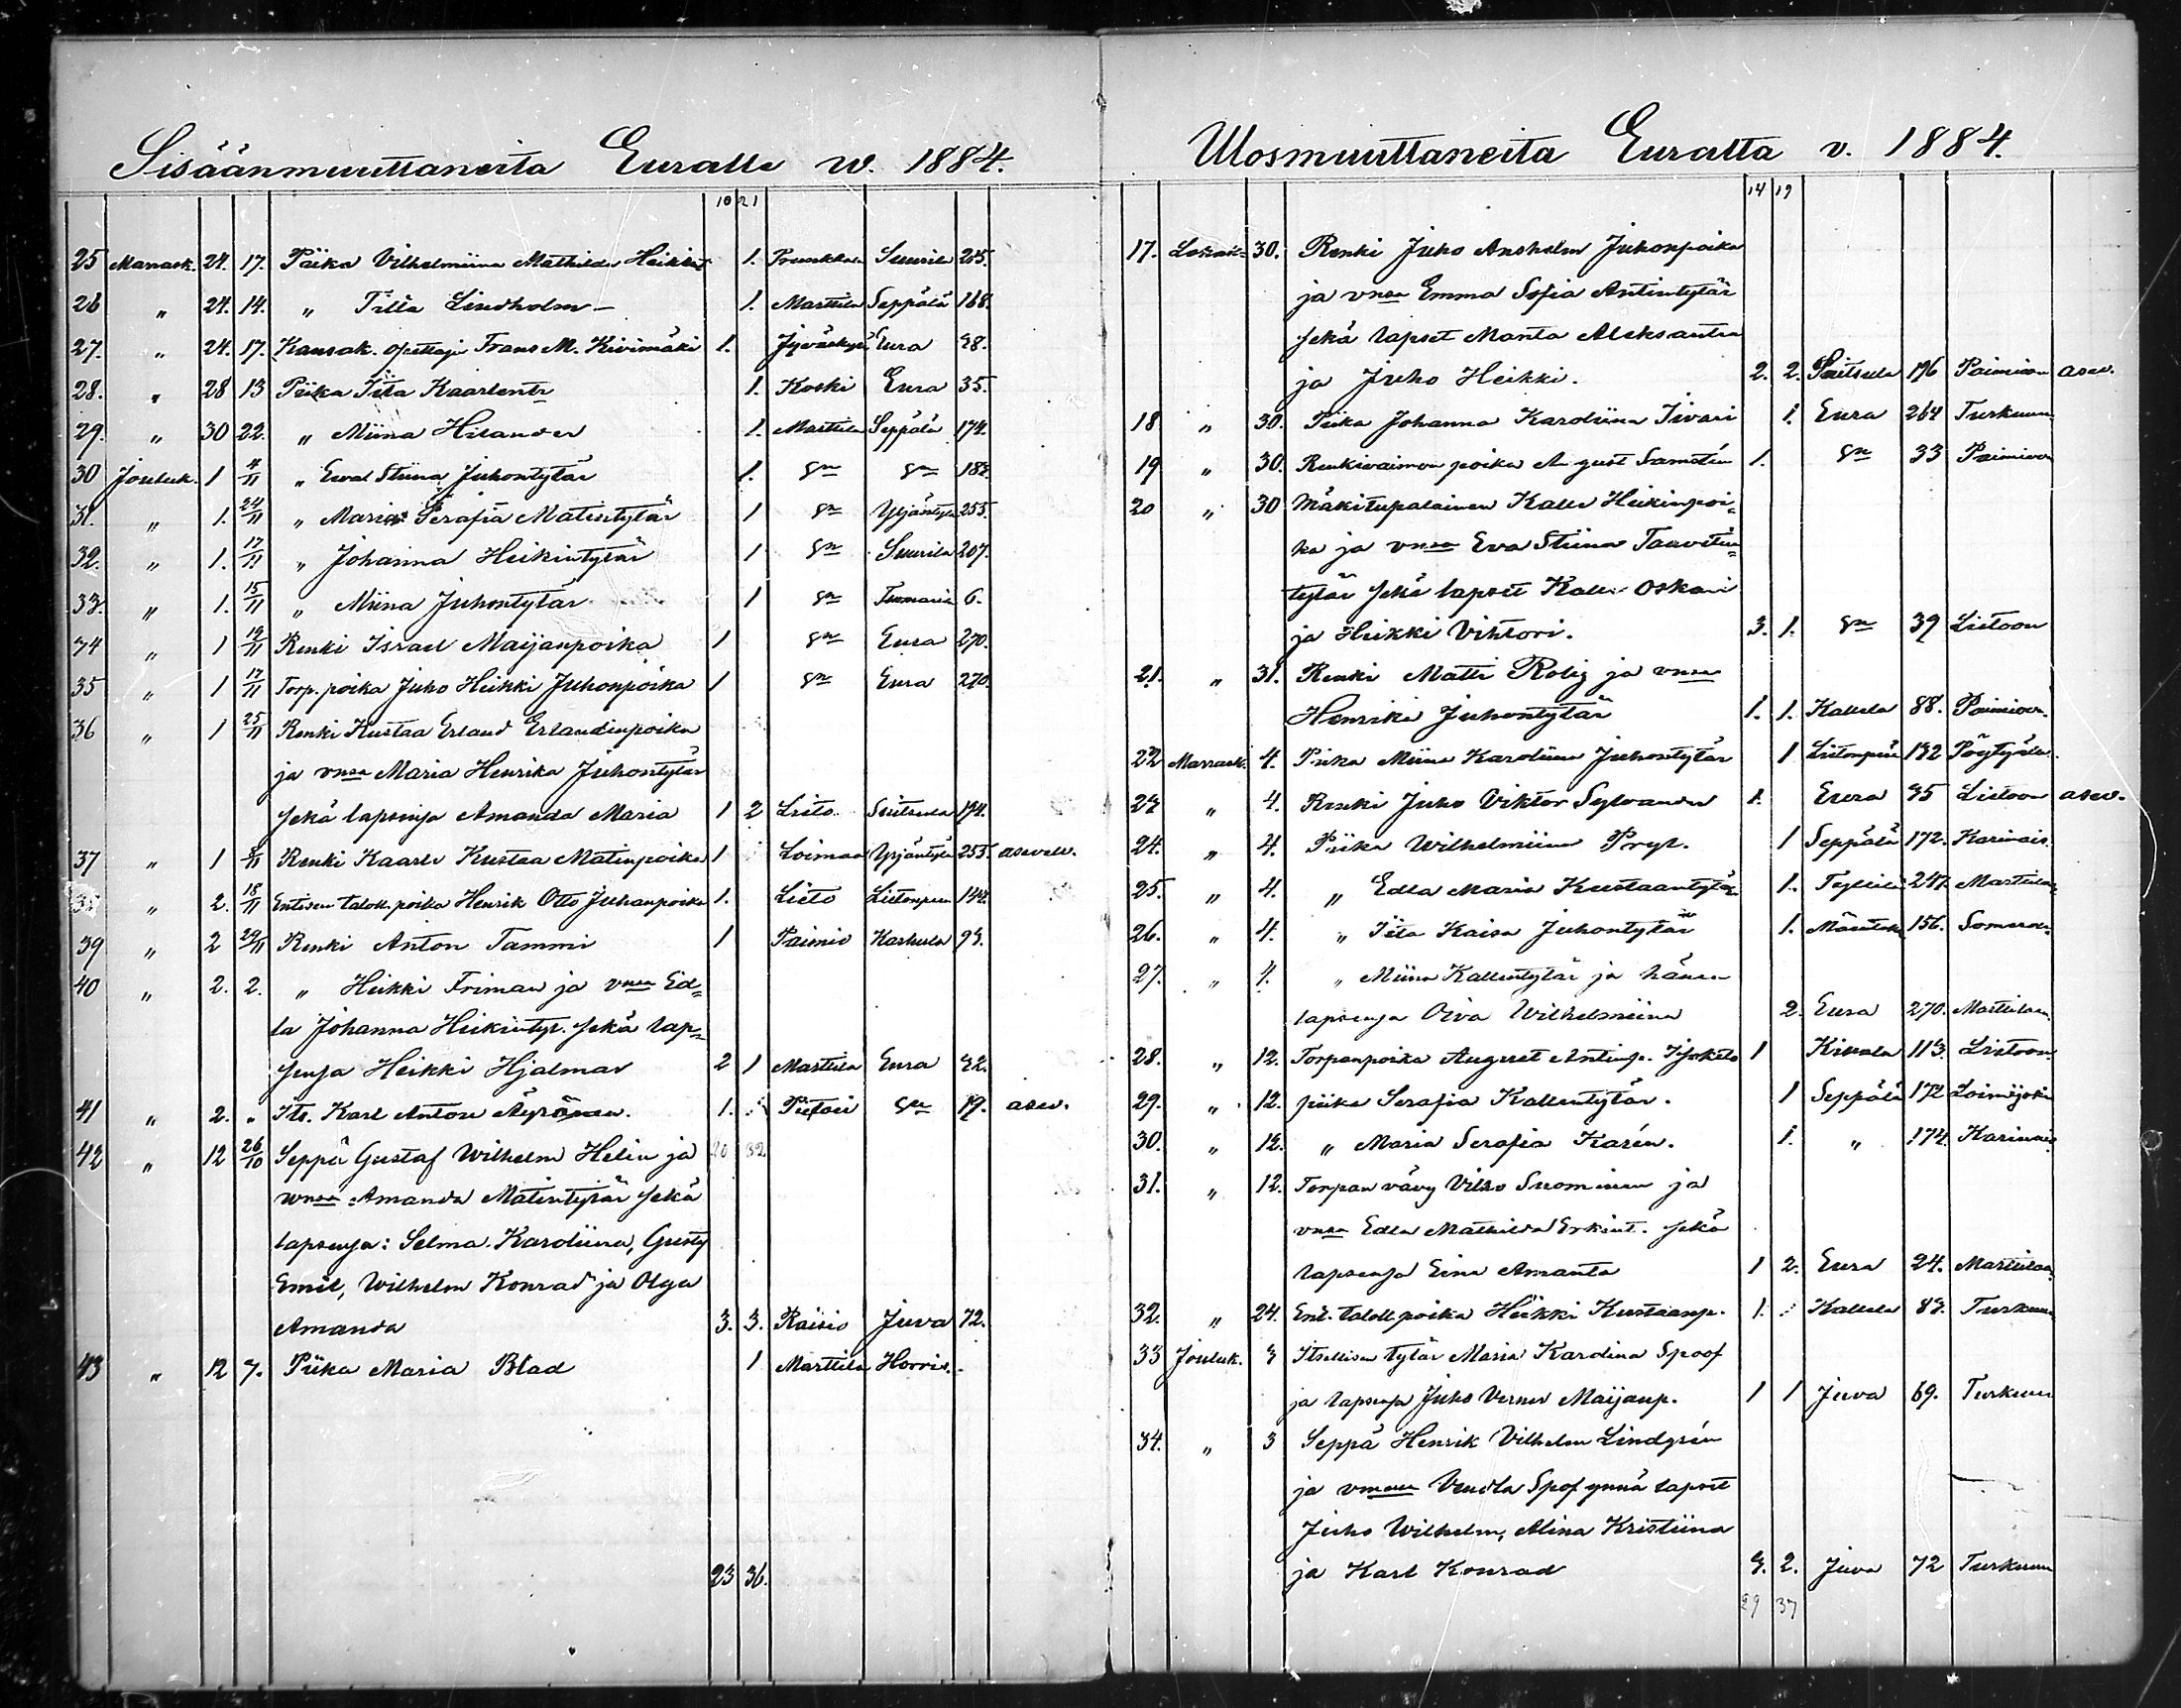 Sisäänmuuttaneita Euralle w. 1884.
10 21
25 Marrask. 24. 17. Piika Vilhelmiina Mathilda Heikint. 1. Prunkkala Suurila 215.
26 " 24. 14. " Tilta Lindholm 1. Marttila Seppälä 168.
27. " 24. 17. Kansak. opettaja Frans M. Kivimäki 1. Jyväskylä Eura 48.
28. " 28 13 Piika Iita Kaarlentr 1. Koski Eura 35.
29. " 30 22. " Miina Hilander 1. Marttila Seppälä 174.
30 Jouluk. 1 4/11 " Eeva Stiina Juhontytär 1. Sn Sn 182.
31. " 1. 24/11 " Maria Serafia Matintytär 1 Sn Ypäjäntyls 255.
32. " 1. 17/11 " Johanna Heikintytär 1 Sn Suurila 207.
33. " 1. 15/11 " Miina Juhontytär 1 Sn Tuomaria 6.
34 " 1 19/11 Renki Israel Maijanpoika 1 Sn Eura 270.
35 " 1 17/11 Torp. poika Juho Heikki Juhonpoika 1 Sn Eura 270.
36 " 1 25/11 Renki Kustaa Erland Erlandinpoika
ja vnsa Maria Henrika Juhontytär
sekä lapsensa Amanda Maria 1 2 Lieto Suitsula 194.
37 " 1 8/11 Renki Kaarle Kustaa Matinpoika 1 Loimaa 253. asevelv.
38 " 2. 18/11 Entisen taloll. poika Henrik Otto Juhanpoika 1. Lieto Lietonperä 144.
39 " 2 29/11 Renki Anton Tammi 1 Paimio Karhula 93.
40 " 2. 2. " Heikki Friman ja vnsa Ed=
la Johanna Heikintyt. sekä lap=
sensa Heikki Hjalmar 2 1 Marttila Eura 42.
41 " 2. " Its. Karl Anton Äyränen. 1. Piikiö Sn 19. asev.
42 " 12 26/10 Seppä Gustaf Wilhelm Helin ja 20 32
wnsa Amanda Matintytär sekä
lapsensa: Selma Karoliina, Gustf
Emil, Wilhelm Konrad ja Olga
Amanda 3. 3. Raisio Juva 72.
43 " 12 7. Piika Maria Blad 1 Marttila Horris.
23 36.
Ulosmuuttaneita Euralta v. 1884.
14 19
17. Lokak. 30. Renki Juho Anshelm Juhonpoika
ja vnsa Emma Sofia Antintytär
sekä lapset Manta Aleksantra
ja Juho Heikki. 2. 2. Suitsula 196 Paimioon asev.
18 " 30. Piika Johanna Karoliina Iivari 1. Eura 264 Turkuun
19 " 30. Renkivaimon poika August Samstén 1. Sn 33 Paimioon
20 " 30 Mäkitupalainen Kalle Heikinpoi=
ka ja vnsa Eva Stiina Taavetin=
tytär sekä lapset Kalle Oskari
ja Heikki Vihtori. 3. 1. Sn 39 Lietoon
21. " 31. Renki Matti Rolig ja vnsa
Henrika Juhontytär 1. 1. Kallela 88. Paimioon.
22 Marrask. 4. Piika Miina Karoliina Juhontytär 1 Lietonperä 142 Pöytyälle.
23 " 4. Renki Juho Viktor Sylvander 1. Eura 35 Lietoon asev.
24. " 4. Piika Wilhelmiina Pryt. 1 Seppälä 172. Karinais.
25. " 4. " Edla Maria Kustaantytär 1. 247. Marttilaan
26. " 4. " Iita Kaisa Juhontytär 1. 156. Someroon
27. " 4. " Miina Kallentytär ja hänen
lapsensa Oiva Wilhelmiina 2. Eura 270. Marttilaan.
28. " 12. Torpanpoika August Antinp. 1 Kivala 113. Lietoon
29. " 12. piika Serafia Kallentytär. 1 Seppälä 172 Loimijoki
30. " 12. " Maria Serafia Karén. 1. " 174. Karinais
31. " 12. Torpan vävy Vilho Suominen ja
vnsa Edla Mathilda Erkint. sekä
lapsensa Eina Amanta 1 2. Eura 24. Marttilaan
32. " 24. Ent. taloll. poika Heikki Kustaanp. 1. Kallela 83. Turkuun
33 Jouluk. 3 Itsellisen tytär Maria Karolina Spoof
ja lapsensa Juho Verner Maijanp. 1 1 Juva 69. Turkuun
34. " 3 Seppä Henrik Vilhelm Lindgrén
ja vmonsa Vendla Spof ynnä lapset
Juho Wilhelm, Alina Kristiina
ja Karl Konrad 3. 2. Juva 72 Turkuun
29 37